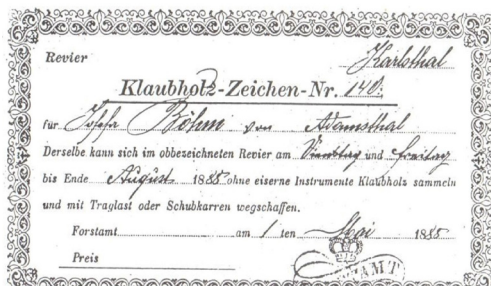 Revier Karlsthal
Klaubholz-Zeichen-Nr. 140.
für Josefa Böhm von Adamsthal
Derselbe kann sich im obbezeichneten Revier am Dienstag und Freitag
bis Ende August 1885 ohne eiserne Instrumente Klaubholz sammeln
und mit Traglast oder Schubkarren wegschaffen.
Forstamt am 1 ten Mai 1885
Preis
AMT